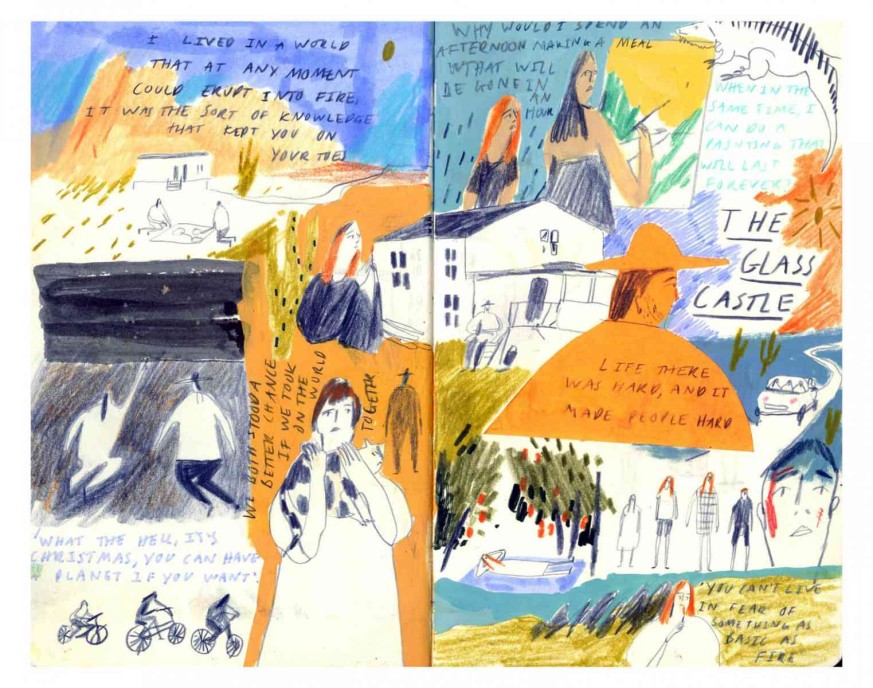 I LIVED IN A WORLD
THAT AT ANY MOMENT
COULD ERUPT INTO FIRE.
IT WAS THE SORT OF KNOWLEDGE
THAT KEPT YOU ON
YOUR TOES
WE BOTH STOOD A
BETTER CHANCE
IF WE TOOK
ON THE
WORLD
TOGETHR
'WHAT THE HELL, IT'S
CHRISTMAS, YOU CAN HAVE
A PLANET IF YOU WANT'.
WHY WOULD I SPEND AN
AFTERNOON MAKING A MEAL
WTHAT WILL
BE GONE IN
AN
HOUR
WHEN IN THE
SAME TIME, I
CAN DO A
PAINTING THAT
WILL LAST
FOREVER?
THE
GLASS
CASTLE
LIFE THERE
WAS HARD, AND IT
MADE PEOPLE HARD
'YOU CAN'T LIVE
IN FEAR OF
SOMETHING AS
BASIC AS
FIRE